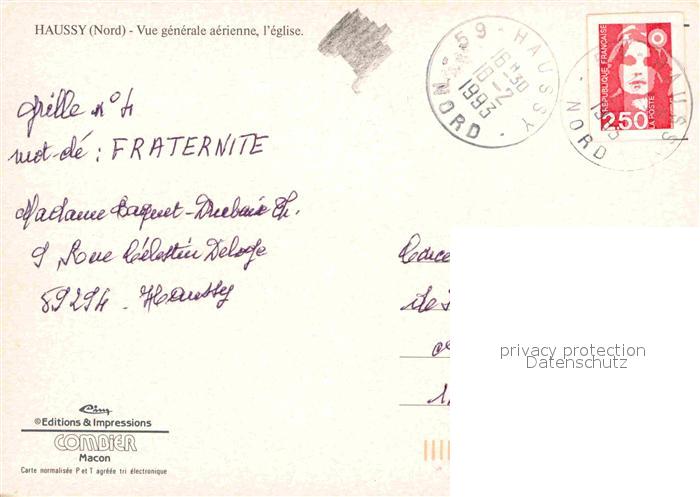 HAUSSY (Nord) - Vue générale aérienne, l'église.
59 - HAUSSY
16H30
10-2
1993
NORD
RÉPUBLIQUE FRANÇAISE
2,50
LA POSTE
HAUSSY
1993
NORD
Grille n°4
mot-clé : FRATERNITE
Madame Baquet-Dubuis Th.
9, Rue Célestin Deloge
59294. Haussy
privacy protection
Datenschutz
Cim
©Editions & Impressions
COMBIER
Macon
Carte normalisée P et T agréée tri électronique